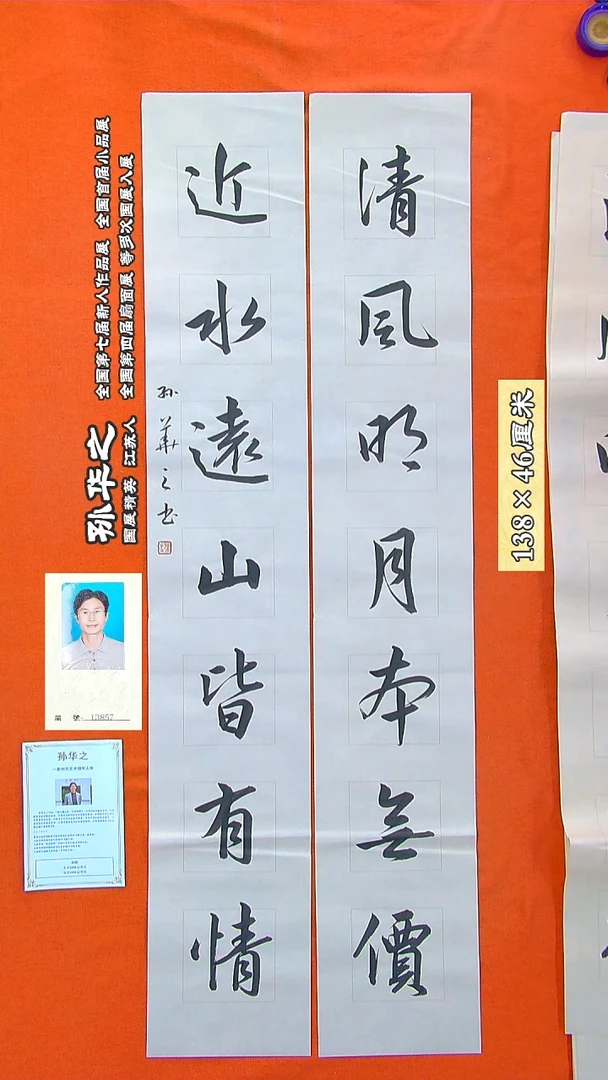 清風明月本無價
近水遠山皆有情
孙華之书
孙华之
国展精英 江苏人
全国第七届新人作品展 全国首届小品展
全国第四届扇面展 等多次国展入展
138×46厘米
编 號 13857
孙华之